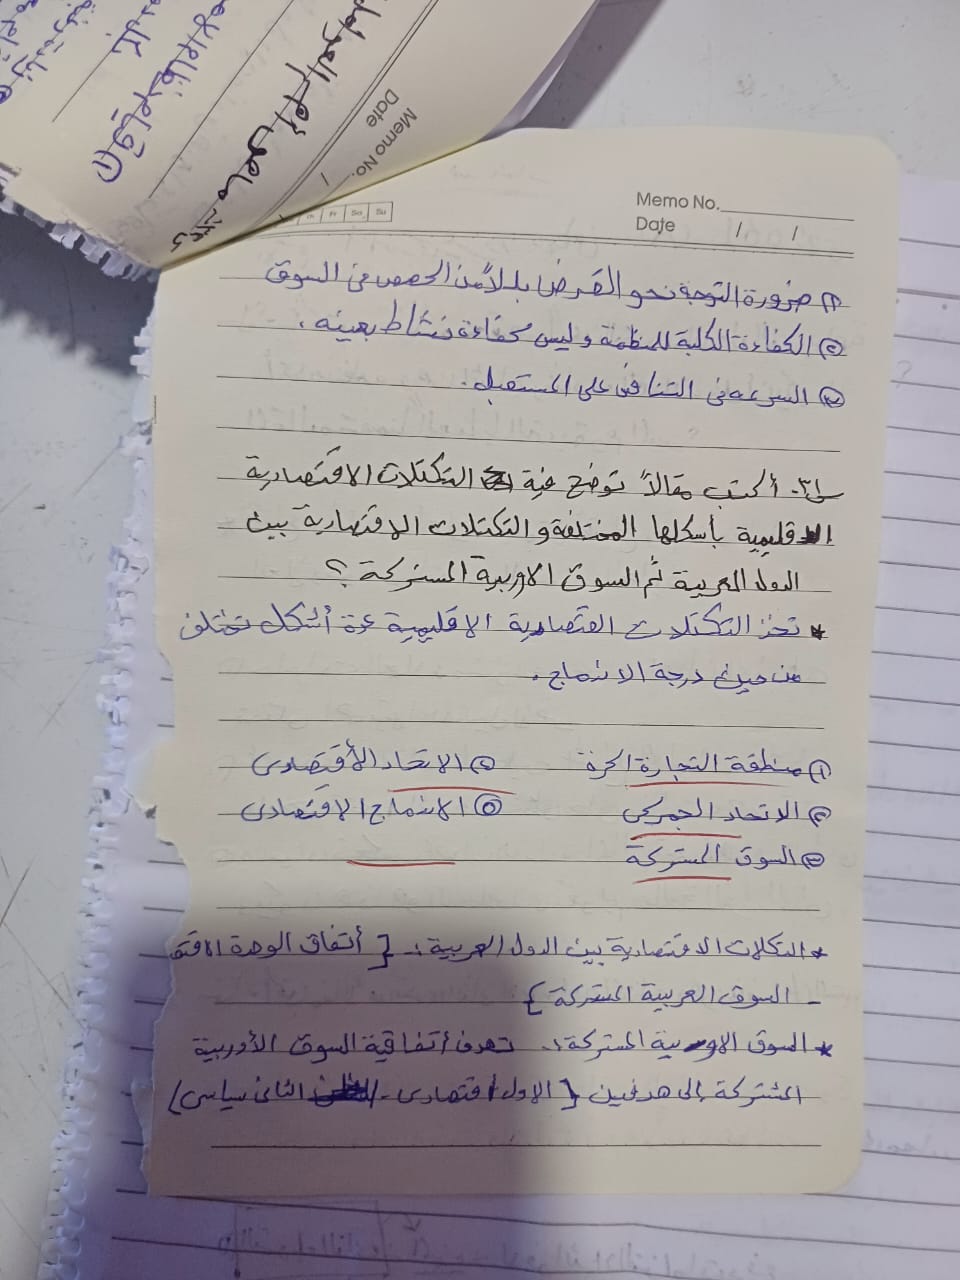 Memo No.
Date / /
١) ضرورة التوجه نحو الفرض بدلاً من الحصص فى السوق
٢) الكفاءة الكلية للمنظمة وليس كفاءة نشاط بعينه .
٣) السرعه فى التنافس على المستقبل .
س٣- أكتب مقالاً توضح فية التكتلات الاقتصادية
الاقليمية بأسكلها المختلفة و التكتلات الاقتصادية بين
الدول العربية ثم السوق الاوربية المشتركة ؟
* تخذ التكتلات القتصادية الاقليمية عدة أشكل تختلف
من حيث درجة الاندماج .
١) منطقة التجارة الحرة ٤) الاتحاد الأقتصادى
٢) الاتحاد الجمركى ٥) الاندماج الاقتصادى
٣) السوق المشتركة
* التكلات الاقتصادية بين الدول العربية :- { أتفاق الوحدة الاقتـ
- السوق العربية المشتركة }
* السوق الاوربية المشتركة :- تهدف أتفاقية السوق الأوربية
المشتركة إلى هدفين { الاول أقتصادى - الثانى سياسى /
Memo No.
Date /
Fr Sa Su